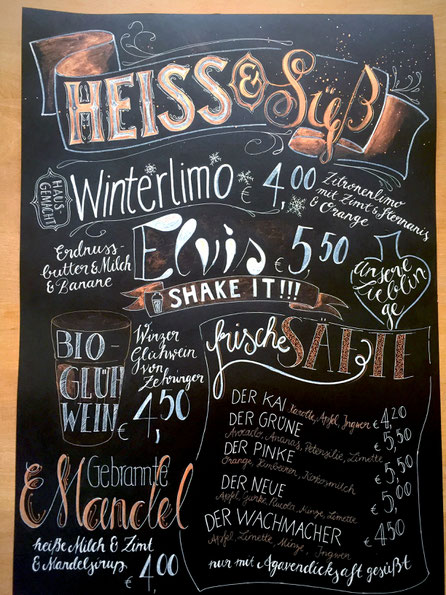 HEISS & Süß
HAUS-
GEMACHT
Winterlimo € 4,00
Zitronenlimo
mit Zimt & Sternanis
& Orange
Erdnuss-
butter & Milch
& Banane
Elvis € 5,50
SHAKE IT!!!
unsere
Lieblin
ge
BIO-
GLÜH
WEIN
Winzer
Glühwein
von
Zähringer
€ 4,50
frische SÄFTE
DER KAI Karotte, Apfel, Ingwer € 4,20
DER GRÜNE € 5,50
Avocado, Ananas, Petersilie, Limette
DER PINKE € 5,50
Orange, Himbeeren, Kokosmilch
DER NEUE € 5,00
Apfel, Gurke, Rucola, Minze, Limette
DER WACHMACHER € 4,50
Apfel, Limette, Minze, Ingwer
nur mit Agavendicksaft gesüßt
Gebrannte
Mandel
heiße Milch & Zimt
& Mandelsirup € 4,00